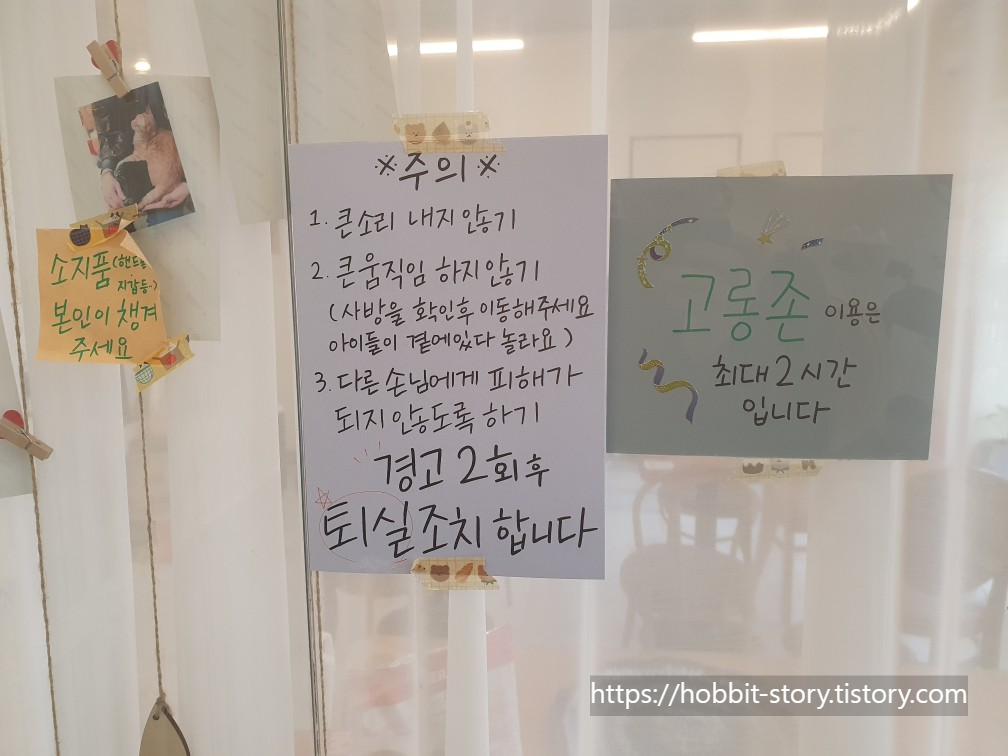 소지품(핸드폰
지갑등..)
본인이 챙겨
주세요
※주의※
1. 큰소리 내지 않기
2. 큰 움직임 하지 않기
(사방을 확인후 이동해주세요
아이들이 곁에있다 놀라요)
3. 다른 손님에게 피해가
되지 안놓도록 하기
경고 2회 후
퇴실조치 합니다
고롱존 이용은
최대 2시간
입니다
https://hobbit-story.tistory.com